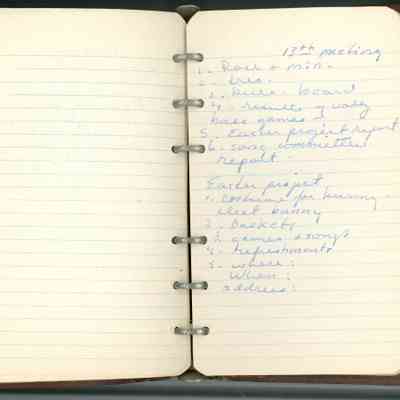 13th meeting
1. Roll + min.
2. tres.
3. Rura. board
4. results of
base games
5. Easter project report
6. song committee
report
Easter project
1. costume for bunny -
bunny
2. baskets
3. games & songs
4. refreshments
5. where:
When:
address: